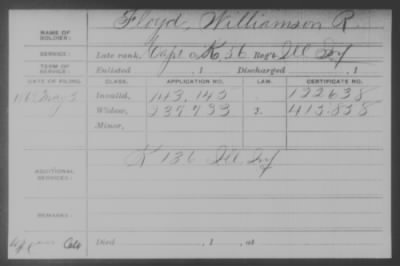 NAME OF SOLDIER: Floyd, Williamson R.
SERVICE: Late rank, Capt Co. K, 56 Reg't Ill Inf
TERM OF SERVICE: Enlisted , 1 Discharged , 1
DATE OF FILING. CLASS. APPLICATION NO. LAW. CERTIFICATE NO.
May 5 Invalid, 143,145 122638
Widow, 237733 2. 413.828
Minor,
ADDITIONAL SERVICES: K 136 Ill Inf
REMARKS:
Died , 1 , at